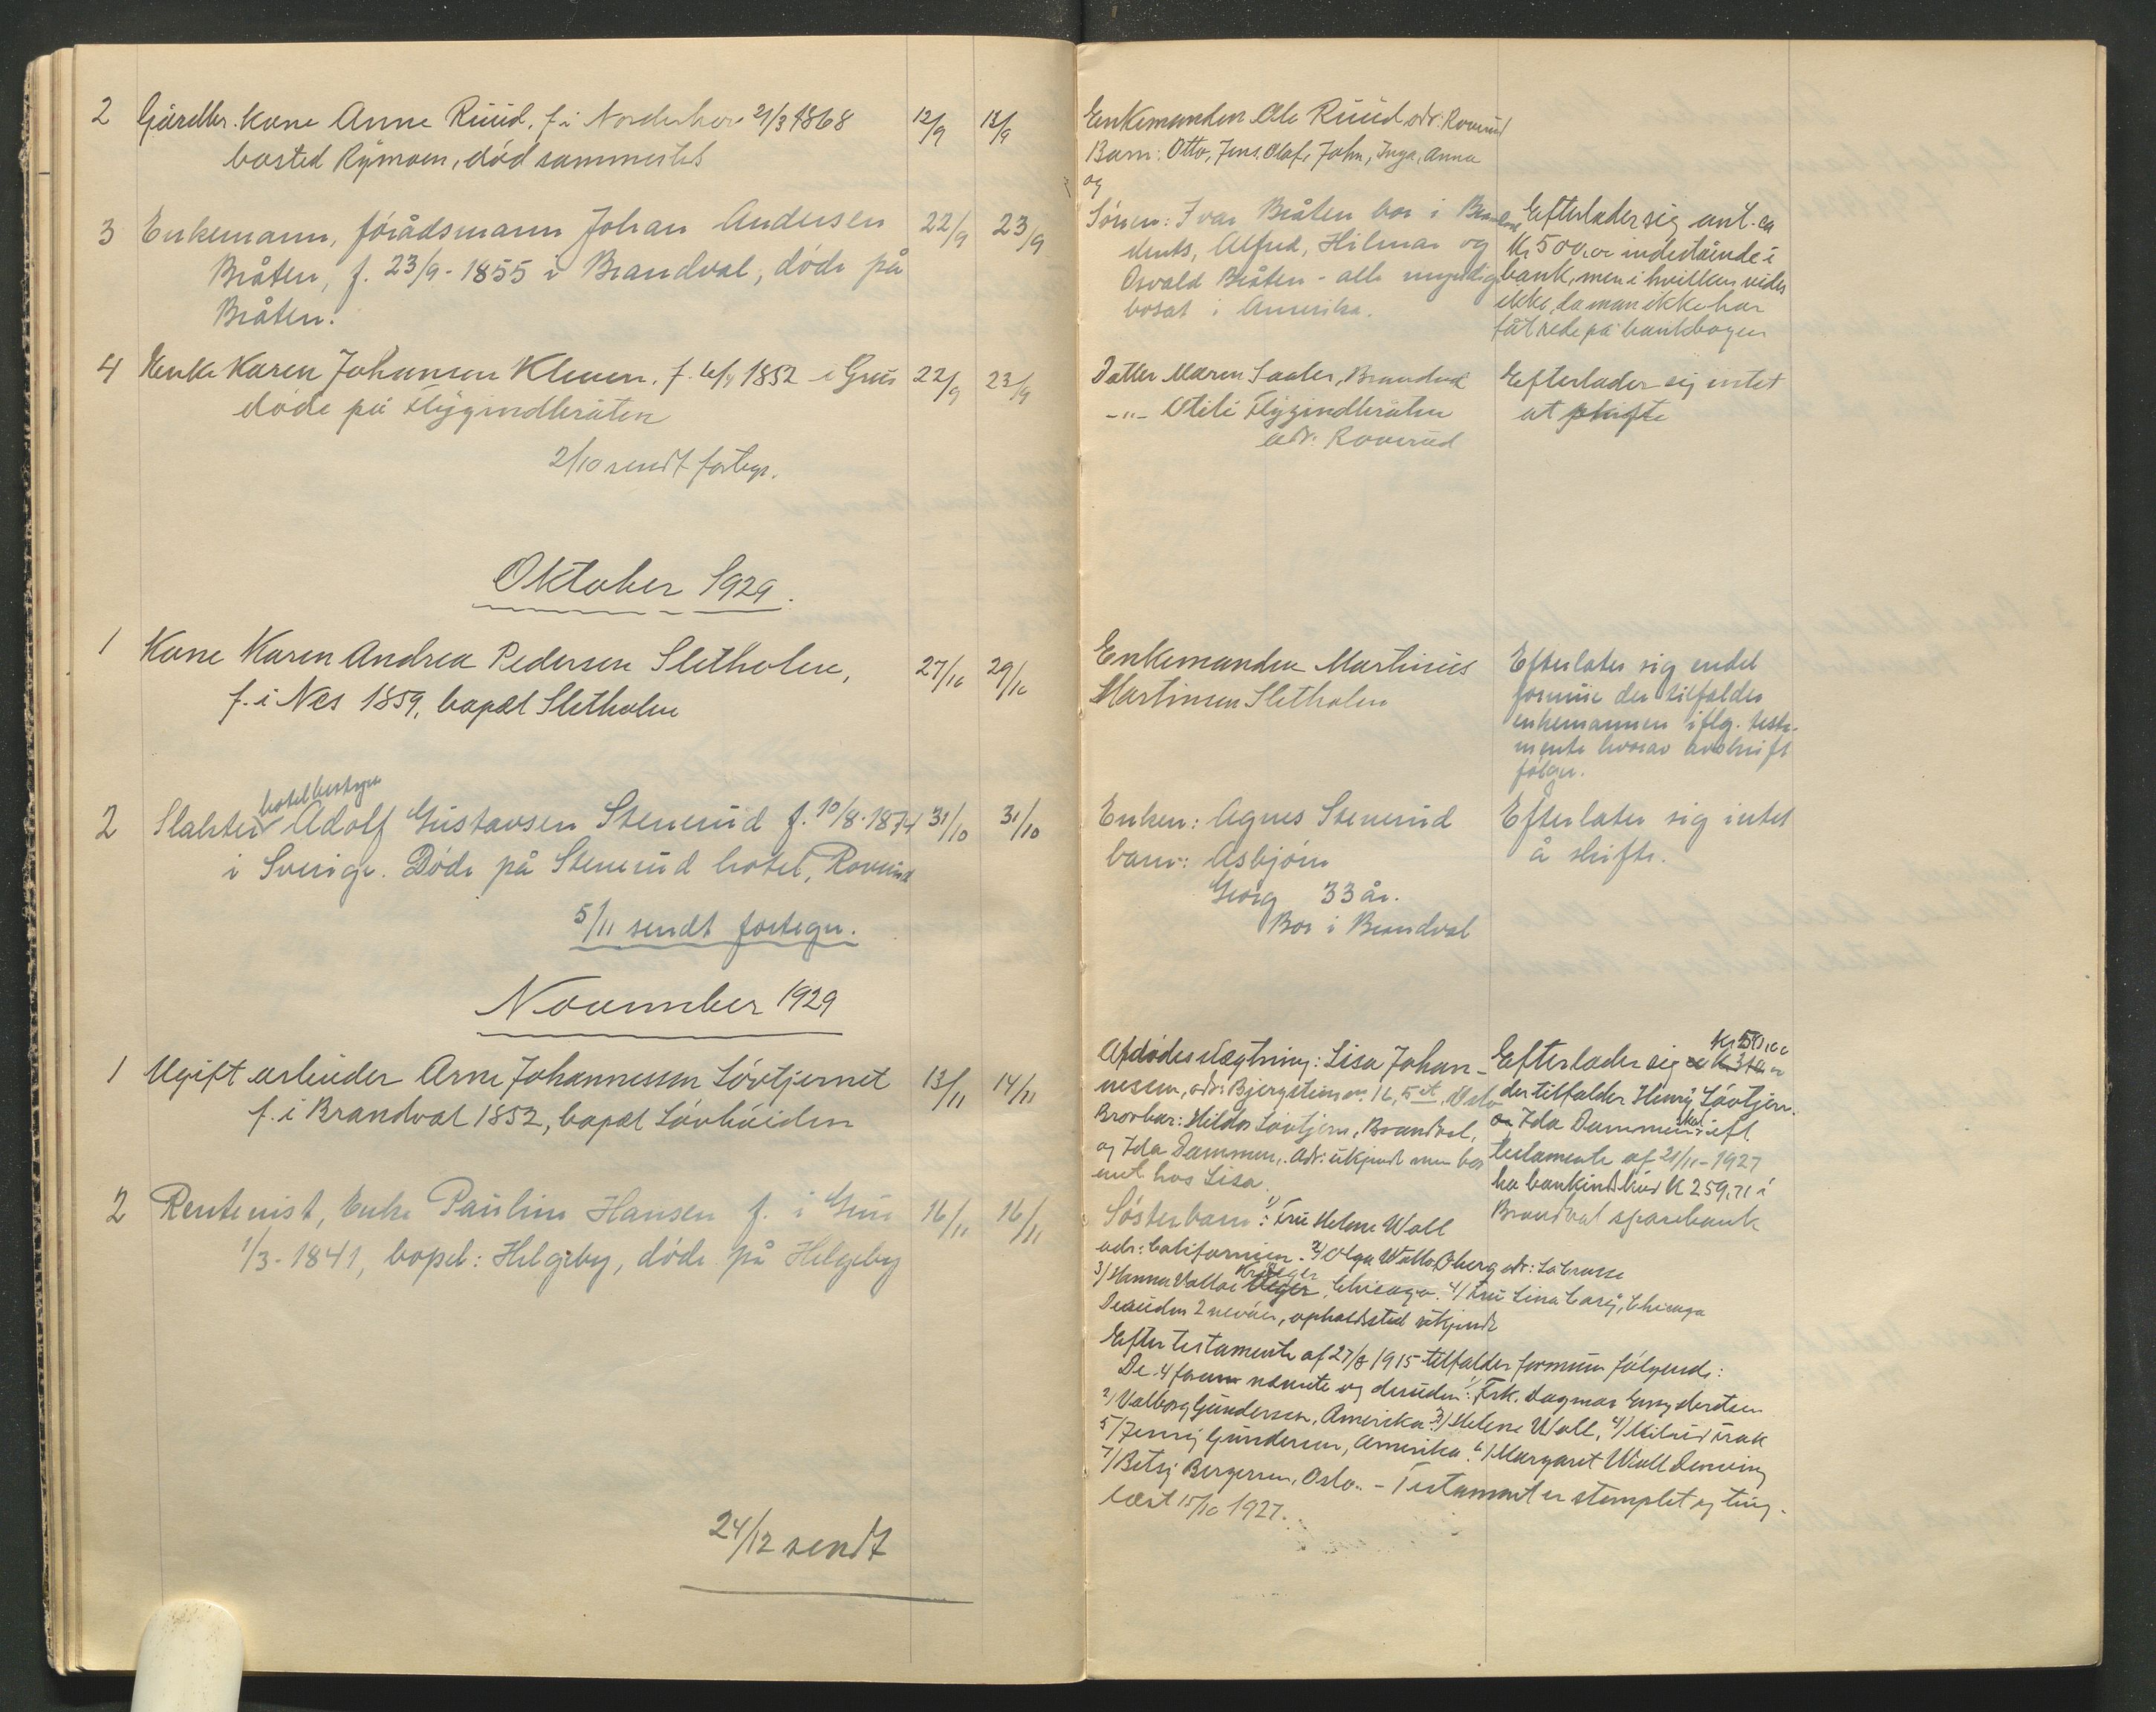 2 Gårdbr. kone Anne Ruud, f. i Norderhov 21/3 1868 12/9 13/9
bosted Rymoen, død sammesteds
3 Enkemann, føderådsmann Johan Andersen 22/9 23/9
Bråten, f. 23/9-1855 i Brandval, døde på
Bråten.
4 Enke Karen Johansen Kleven, f. 1852 i Grue 22/9 23/9
døde på Flygindbråten
2/10 sendt fortegn.
Oktober 1929.
1 Kone Karen Andrea Pedersen Sletholen, 27/10 29/10
f. i Nes 1859, bopæl Sletholen
hotelbestyrer
2 Slakter Adolf Gustavsen Stenerud f. 10/8-1874 31/10 31/10
i Sverige. Døde på Stenerud hotel, Roverud
5/11 sendt fortegn.
November 1929
1 Ugift arbeider Arne Johannessen Løvtjernet 13/11 14/11
f. i Brandval 1852, bopæl Løvhøiden
2 Rentenist, Enke Pauline Hansen f. i Grue 16/11 16/11
1/3-1841, bopel: Helgeby, døde på Helgeby
24/12 sendt
Enkemanden Ole Ruud adr: Roverud
Barn: Otto, Jens, Olaf, John, Inga, Anna
og
Sønn: Ivar Bråten bor i
Alfred, Hilmar og
Osvald Bråten - alle myndige
bosat i Amerika.
Efterlader sig ant. ca
Kr 500,00 indestående i
bank, men i hvilken vides
ikke, da man ikke har
fåt rede på bankbogen
Datter Maren Saaler, Brandval
-"- Otili Flygindbråten
adr: Roverud
Efterlader sig intet
at skifte
Enkemanden Martinius
Martinsen Sletholen
Efterlater sig endel
formue der tilfalder
enkemannen iflg. testa-
mente hvorav avskrift
følger.
Enken: Agnes Stenerud
barn: Asbjørn
Georg 33 år.
Bor i Brandval
Efterlater sig intet
å skifte.
Afdødes slægtning: Lisa Johan-
nessen, adr: Bjergsteinen 16, 5 et, Oslo
Brorbar: Hilda Løvtjern, Brandval,
og Ida Dammen, Adr: ukjendt men bor
hos Lisa.
Kr 50,00
Efterlader sig
der tilfalder Henry Løvtjern.
Ida Dammen skal efl.
testamente af 21/11-1927
ha bankindskud K 259,71 i
Brandval sparebank
Søsterbarn: 1) Fru Helene Wall
adr: Californien. 2) Olga Oberg adr: La Crosse
3) Hanna Kreger, Chicago. 4) Fru Lina Carý, Chicago
Desuden 2 nevøer, opholdssted ukjendt
Efter testamente af 27/8 1915 tilfalder formuen følgende:
De 4 foran nævnte og desuden: 1) Frk. Dagmar
2) Valborg Gundersen, Amerika 3) Helene Wall, 4)
5) Jenny Gundersen, Amerika 6) Margaret Wall
7) Betsy Bergersen, Oslo. - Testament er stemplet og ting-
læst 15/10 1927.